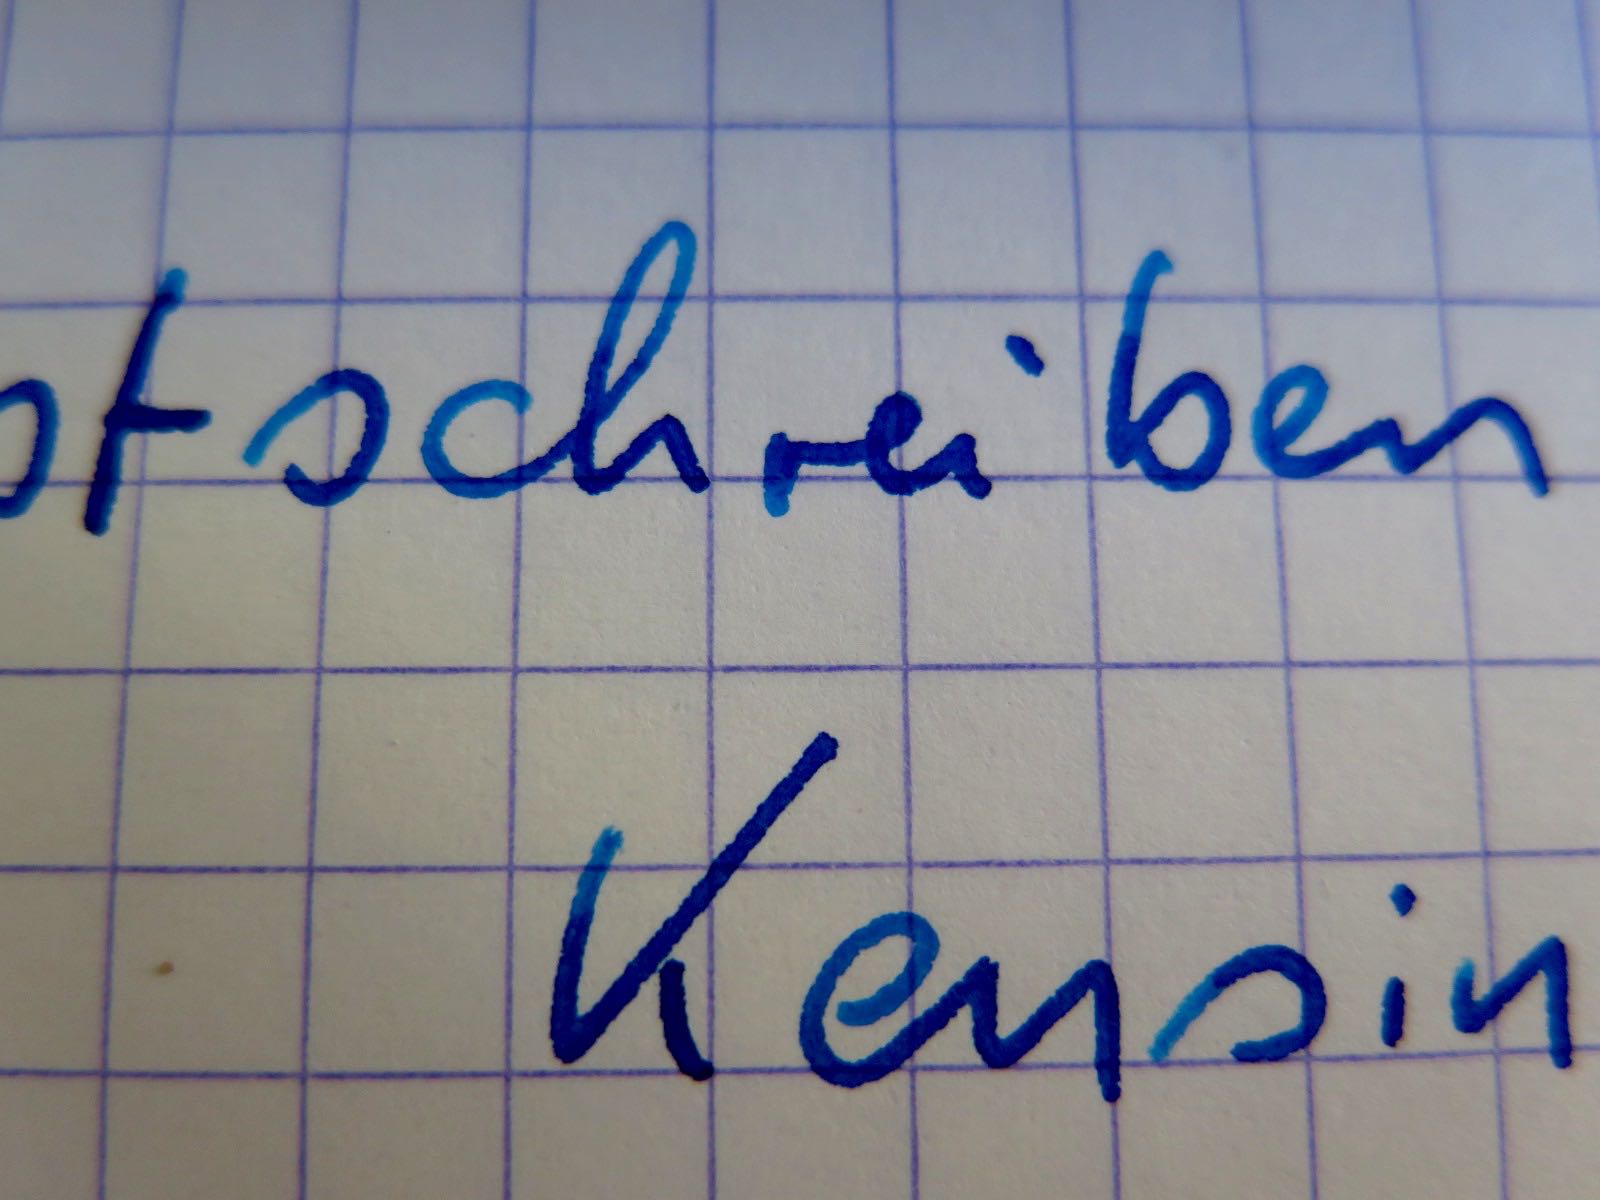 stschreiben
Kensin